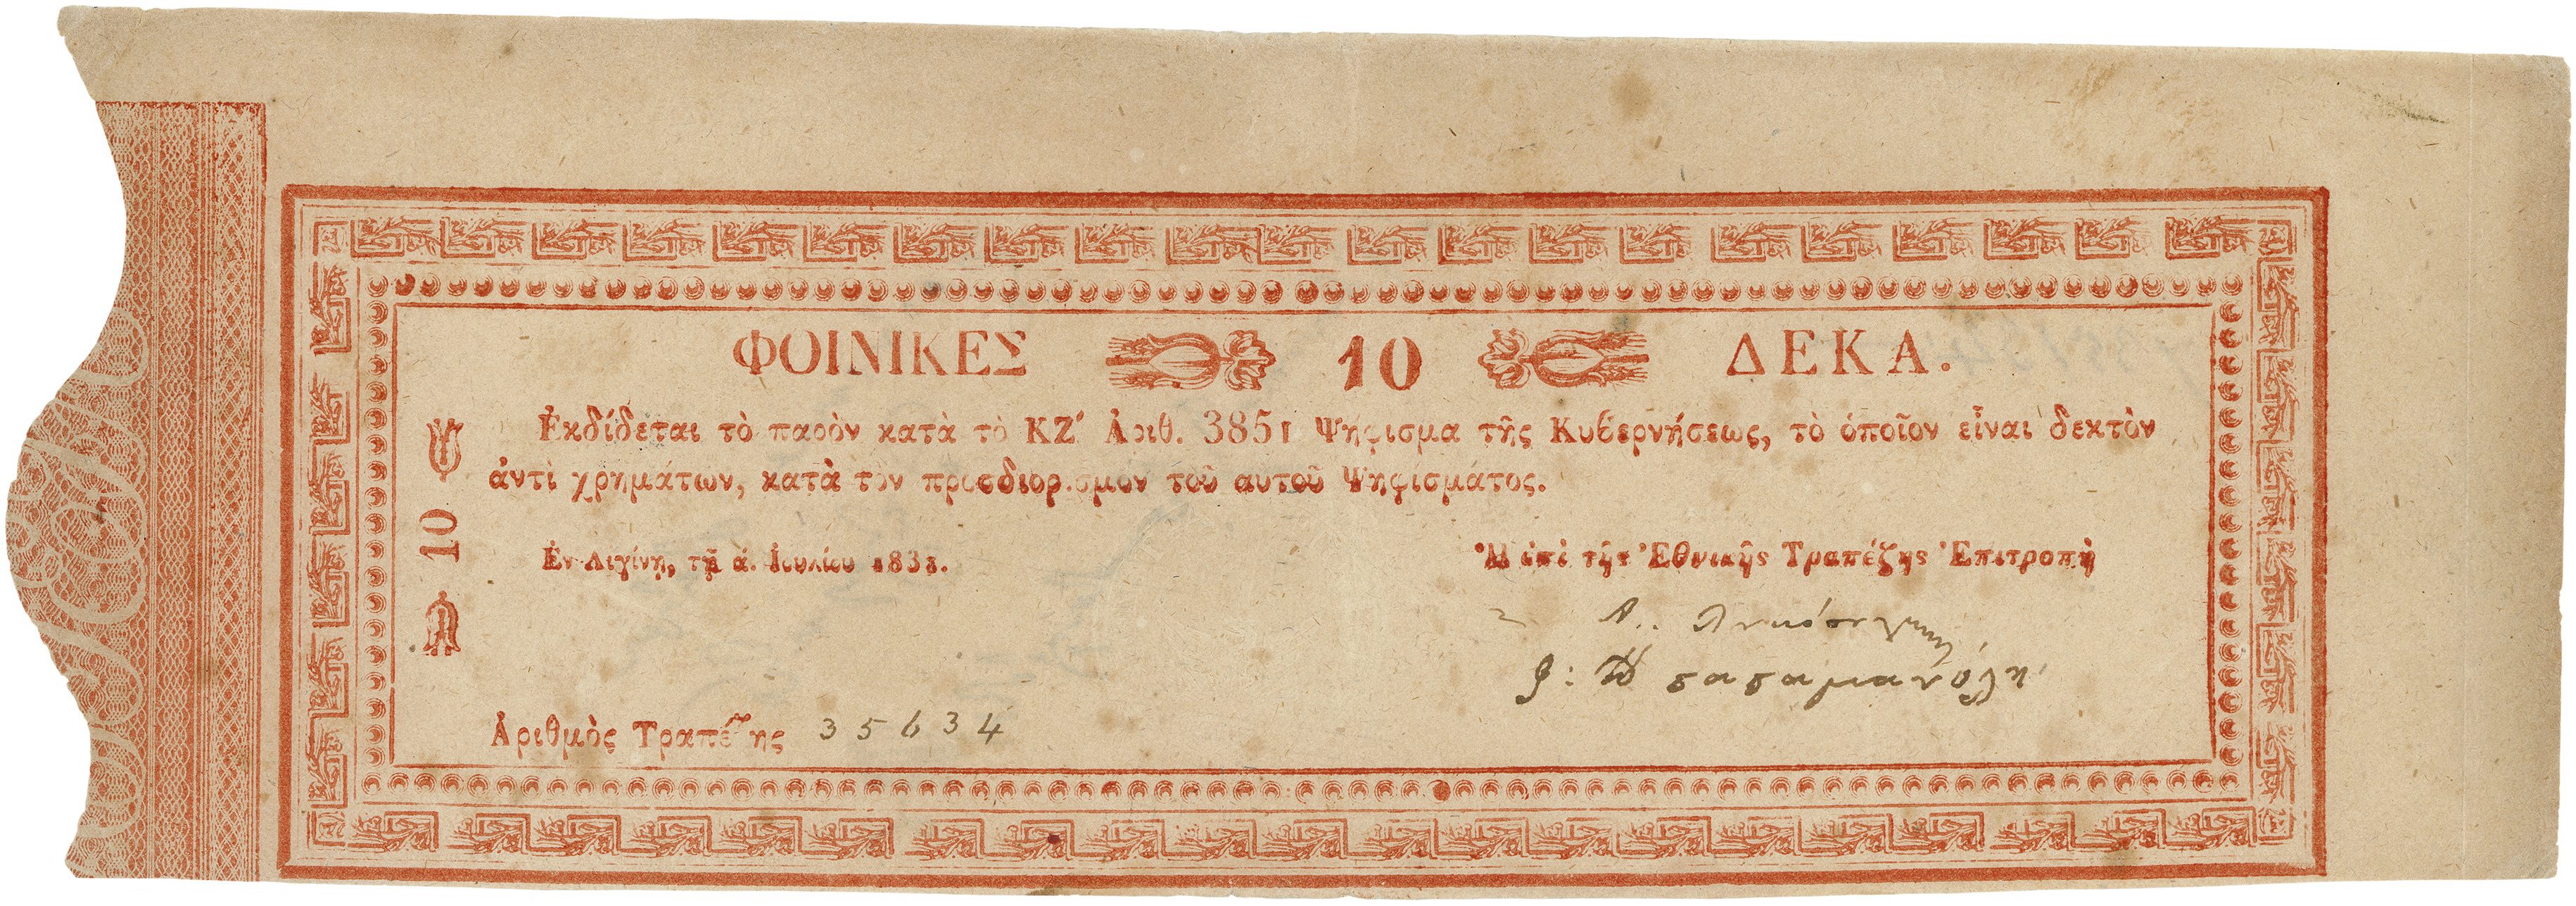 ΦΟΙΝΙΚΕΣ 10 ΔΕΚΑ.
Ἐκδίδεται τὸ παρὸν κατὰ τὸ ΚΖ΄ Ἀριθ. 3851 Ψήφισμα τῆς Κυβερνήσεως, τὸ ὁποῖον εἶναι δεκτὸν
ἀντὶ χρημάτων, κατὰ τὸν προσδιορισμὸν τοῦ αυτοῦ Ψηφίσματος.
10
Ἐν Αἰγίνῃ, τῇ ά. Ἰουλίου 1831.
Ἡ ἐπὶ τῆς Ἐθνικῆς Τραπέζης Ἐπιτροπὴ
Ἀριθμὸς Τραπέζης 35634